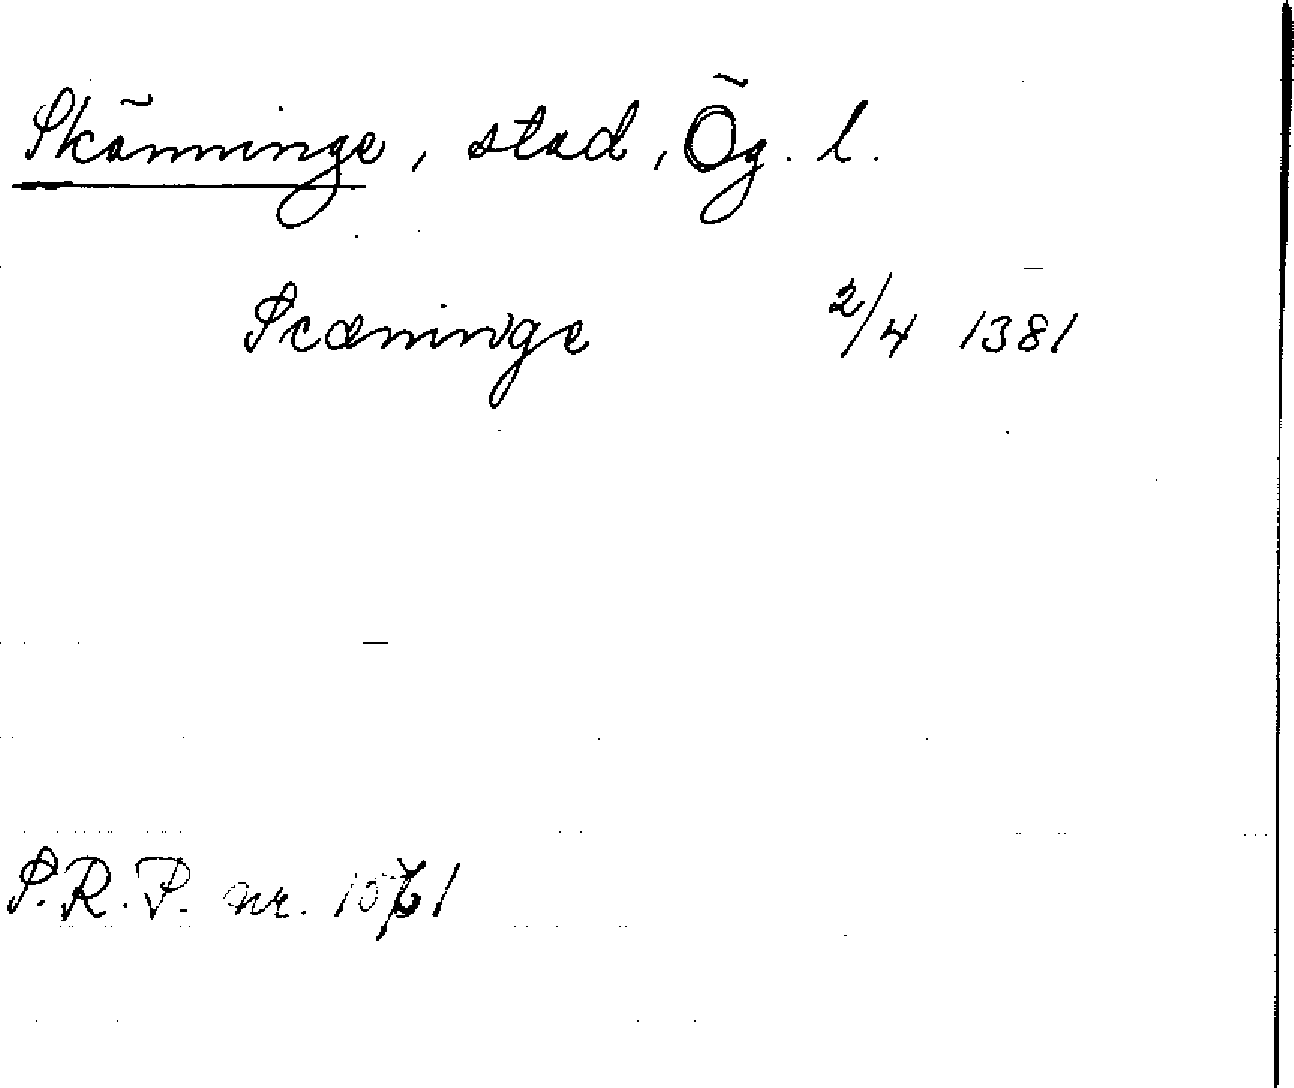 Skänninge, stad, Ög. l.
Scæninge 2/4 1381
S.R.P. nr.